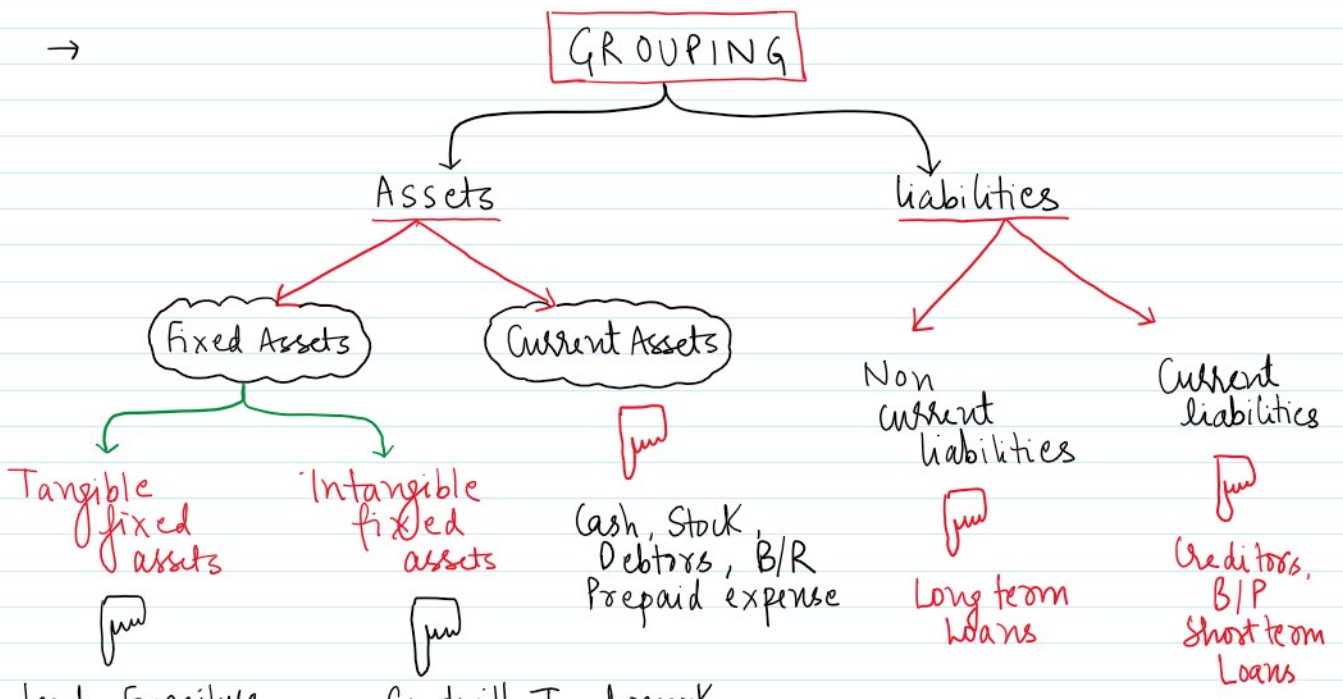 →
GROUPING
Assets
liabilities
Fixed Assets
Current Assets
Non
current
liabilities
Current
liabilities
Tangible
fixed
assets
Intangible
fixed
assets
Cash, Stock,
Debtors, B/R
Prepaid expense
Long term
Loans
Creditors,
B/P
Short term
Loans
Land, Furniture
Goodwill, Trademark